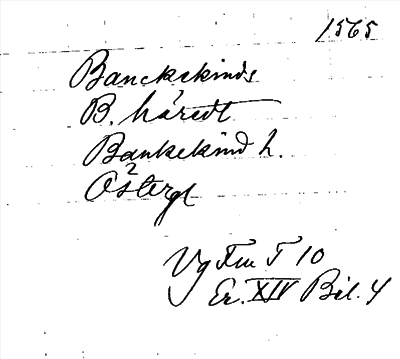 1565
Banckekinds
B. häredt
Bankekind h.
Östergl
Vg Fru T 10
Er. XIV Bil. 4